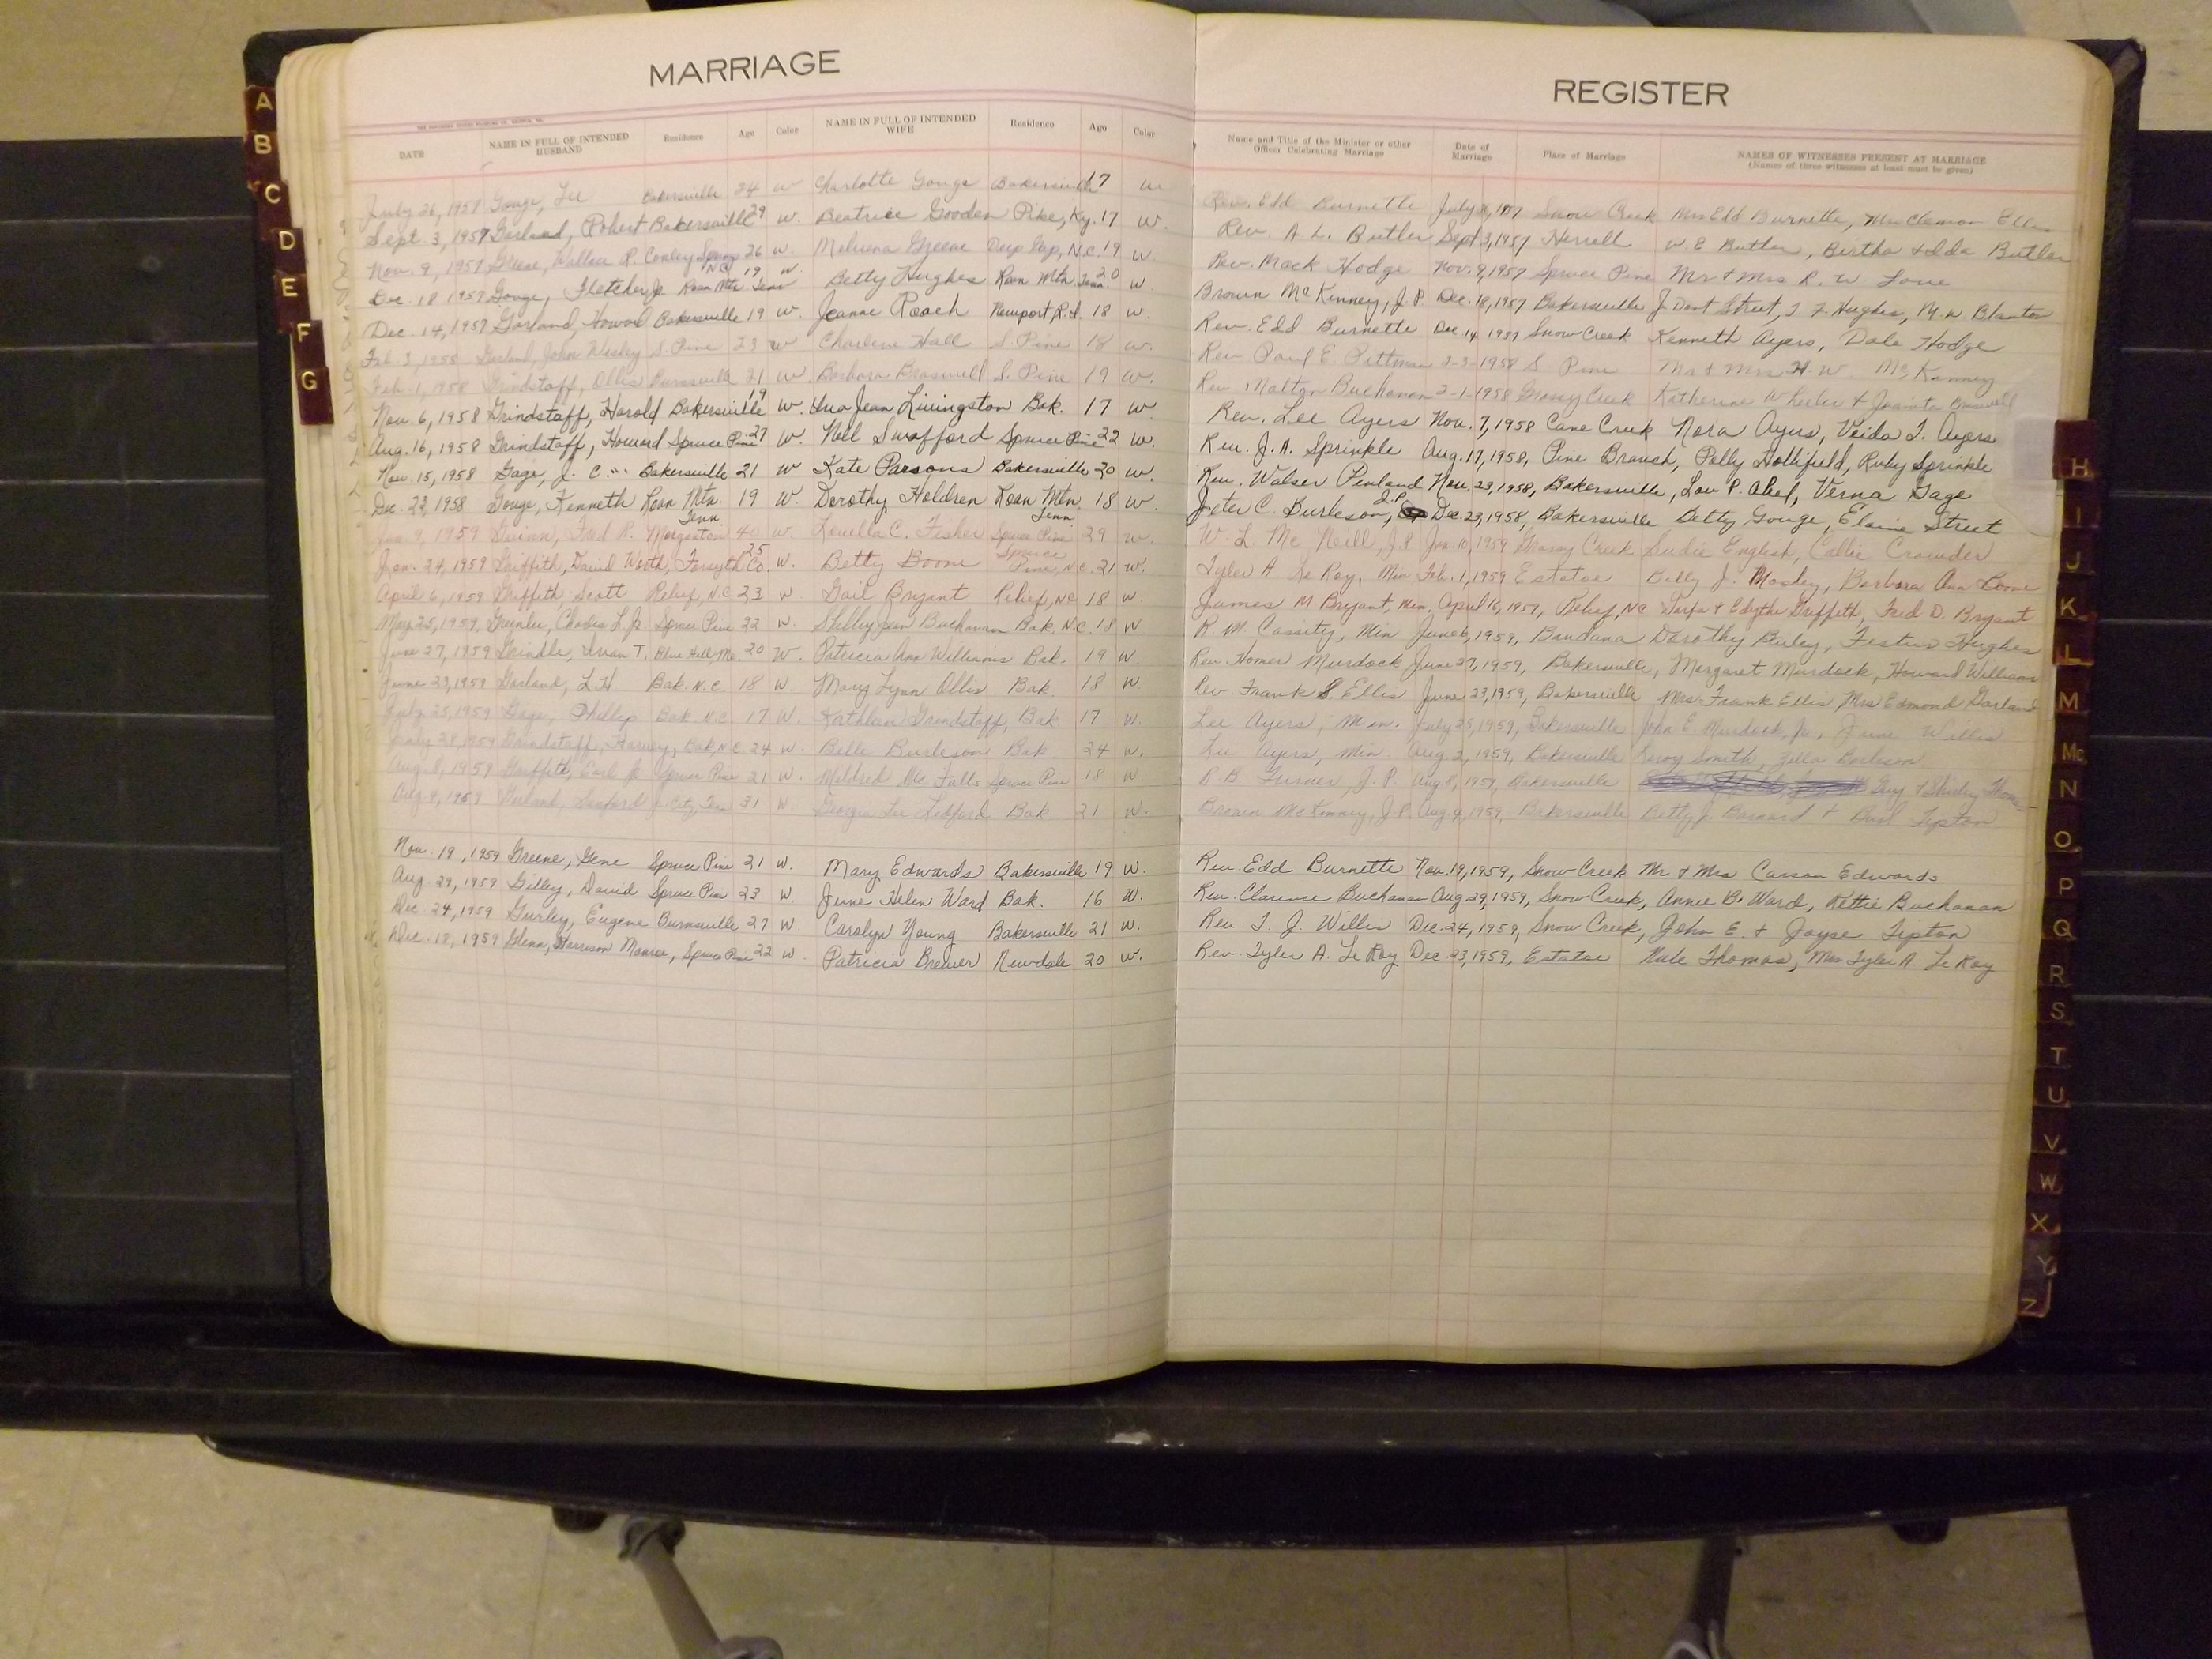 MARRIAGE
DATE NAME IN FULL OF INTENDED HUSBAND Residence Age Color NAME IN FULL OF INTENDED WIFE Residence Age Color
July 26, 1957 Gouge, Lee Bakersville 24 w Charlotte Gouge Bakersville 17 w
Sept. 3, 1957 Garland, Robert Bakersville 29 w. Beatrice Gooden Pike, Ky. 17 w.
Nov. 9, 1957 Greene, Wallace R. Conley Springs N.C. 26 w. Greene Deep Gap, N.C. 19 w
Dec. 18 1957 Gouge, Fletcher Jr. Roan Mtn. Tenn 19, w. Betty Hughes Roan Mtn Tenn. 20 w.
Dec. 14, 1957 Garland, Howard Bakersville 19 w. Jeanne Roach Newport R.I. 18 w.
Feb. 3, 1958 Garland, John Wesley S. Pine 23 w Charlene Hall S. Pine 18 w.
Feb. 1, 1958 Grindstaff, Ollis Burnsville 21 w. Barbara Braswell S. Pine 19 w.
Nov. 6, 1958 Grindstaff, Harold Bakersville 19 w. Jean Livingston Bak. 17 w
Aug. 16, 1958 Grindstaff, Howard Spruce Pine 27 w. Nell Swafford Spruce Pine 22 w.
Nov. 15, 1958 Gage, J. C. Bakersville 21 w Kate Parsons Bakersville 20 w.
Dec. 22, 1958 Gouge, Kenneth Roan Mtn. Tenn. 19 w. Dorothy Holdren Roan Mtn Tenn. 18 w.
Jan. 9, 1959 Guinn, Fred R. Morganton 40 w. Louella C. Fisher Spruce Pine 29 w.
Jan. 24, 1959 Griffith, David Worth, Forsyth Co. 25 w. Betty Boone Spruce Pine, N.C. 21 w.
April 6, 1959 Griffith, Scott Relief, N.C 23 w Gail Bryant Relief, N.C 18 w.
May 25, 1959, Charles L. Jr. Spruce Pine 22 w. Shelby Jean Buchanan Bak. N.C. 18 w
June 27, 1959 Grindle, Ivan T. Blue Hill, Me. 20 w. Patricia Ann Williams Bak. 19 w
June 23, 1959 Garland, L. H Bak. N.C. 18 w. Mary Lynn Ollis Bak 18 w
July 25, 1959 Gage, Phillip Bak. N.C. 17 w. Kathleen Grindstaff, Bak 17 w.
July 28, 1959 Grindstaff, Harvey, Bak, N.C. 24 w. Belle Burleson Bak 24 w.
Aug. 8, 1959 Griffith, Earl Jr. Spruce Pine 21 w. Mildred McFalls Spruce Pine 18 w
Aug. 4, 1959 Garland, J. City, Tenn 31 w. Georgia Lee Ledford Bak 21 w.
Nov. 19, 1959 Greene, Gene Spruce Pine 21 w. Mary Edwards Bakersville 19 w.
Aug. 29, 1959 Gilley, David Spruce Pine 23 w. June Helen Ward Bak. 16 w.
Dec. 24, 1959 Gurley, Eugene Burnsville 27 w. Carolyn Young Bakersville 21 w.
Dec. 18, 1959 Glenn, Harrison Monroe, Spruce Pine 22 w. Patricia Brewer Newdale 20 w.
REGISTER
Name and Title of the Minister or other Officer Celebrating Marriage Date of Marriage Place of Marriage NAMES OF WITNESSES PRESENT AT MARRIAGE (Names of three witnesses at least must be given)
Rev. Edd Burnette July 1957 Snow Creek Mrs Edd Burnette, Mrs Clemon Ellis
Rev. A L. Butler Sept 3, 1957 Herrell W. E Butler, Bertha & Ida Butler
Rev. Mack Hodge Nov. 9, 1957 Spruce Pine Mr & Mrs R. W. Lowe
Brown McKinney, J.P. Dec. 18, 1957 Bakersville J. Dont Street, T. F. Hughes, M. W. Blanton
Rev. Edd Burnette Dec. 14 1957 Snow Creek Kenneth Ayers, Dale Hodge
Rev Paul E. Pittman 2-3-1958 S Pine Mr & Mrs H. W. McKinney
Rev. Malton Buchanan 2-1-1958 Grassy Creek Katherine Wheeler & Juanita Braswell
Rev. Lee Ayers Nov. 7, 1958 Cane Creek Nora Ayers, Veida T. Ayers
Rev. J. A. Sprinkle Aug. 17, 1958, Pine Branch, Polly Hollifield, Ruby Sprinkle
Rev. Walser Penland Nov. 23, 1958, Bakersville, Lou P. Abel, Verna Gage
Jeter C. Burleson, J.P. Dec. 23, 1958, Bakersville Betty Gouge, Elaine Street
W. L. McNeill, J.P. Jan. 10, 1959 Grassy Creek Sudie English, Callie Crowder
Tyler A LeRoy, Min Feb. 1, 1959 Estatoe Billy J. Mosley, Barbara Ann Boone
James M Bryant, Min. April 16, 1959, Relief, N.C & Edythe Griffith, Fred D. Bryant
R. M. Cassity, Min June 6, 1959, Bandana Dorothy Burley, Festus Hughes
Rev. Homer Murdock June 27, 1959, Bakersville, Margaret Murdock, Howard Williams
Rev. Frank S Ellis June 23, 1959, Bakersville Mrs. Frank Ellis Mrs Edmond Garland
Lee Ayers, Min. July 25, 1959, Bakersville John E. Murdock, Jr., June Willis
Lee Ayers, Min Aug. 2, 1959, Bakersville Leroy Smith, Zella Burleson
R. B. Turner, J.P. Aug 8, 1959, Bakersville Guy & Shirley
Brown McKinney, J.P. Aug. 4, 1959, Bakersville Betty J. Barnard & Burl Tipton
Rev. Edd Burnette Nov. 19, 1959, Snow Creek Mr & Mrs Carson Edwards
Rev. Clarence Buchanan Aug 29, 1959, Snow Creek, Annie B. Ward, Kettie Buchanan
Rev. T. J. Willis Dec. 24, 1959, Snow Creek, John E. & Joyse Tipton
Rev. Tyler A. LeRoy Dec. 23, 1959, Estatoe Nule Thomas, Mrs Tyler A. LeRoy
A
B
C
D
E
F
G
H
I
J
K
L
M
Mc
N
O
P
Q
R
S
T
U
V
W
X
Y
Z